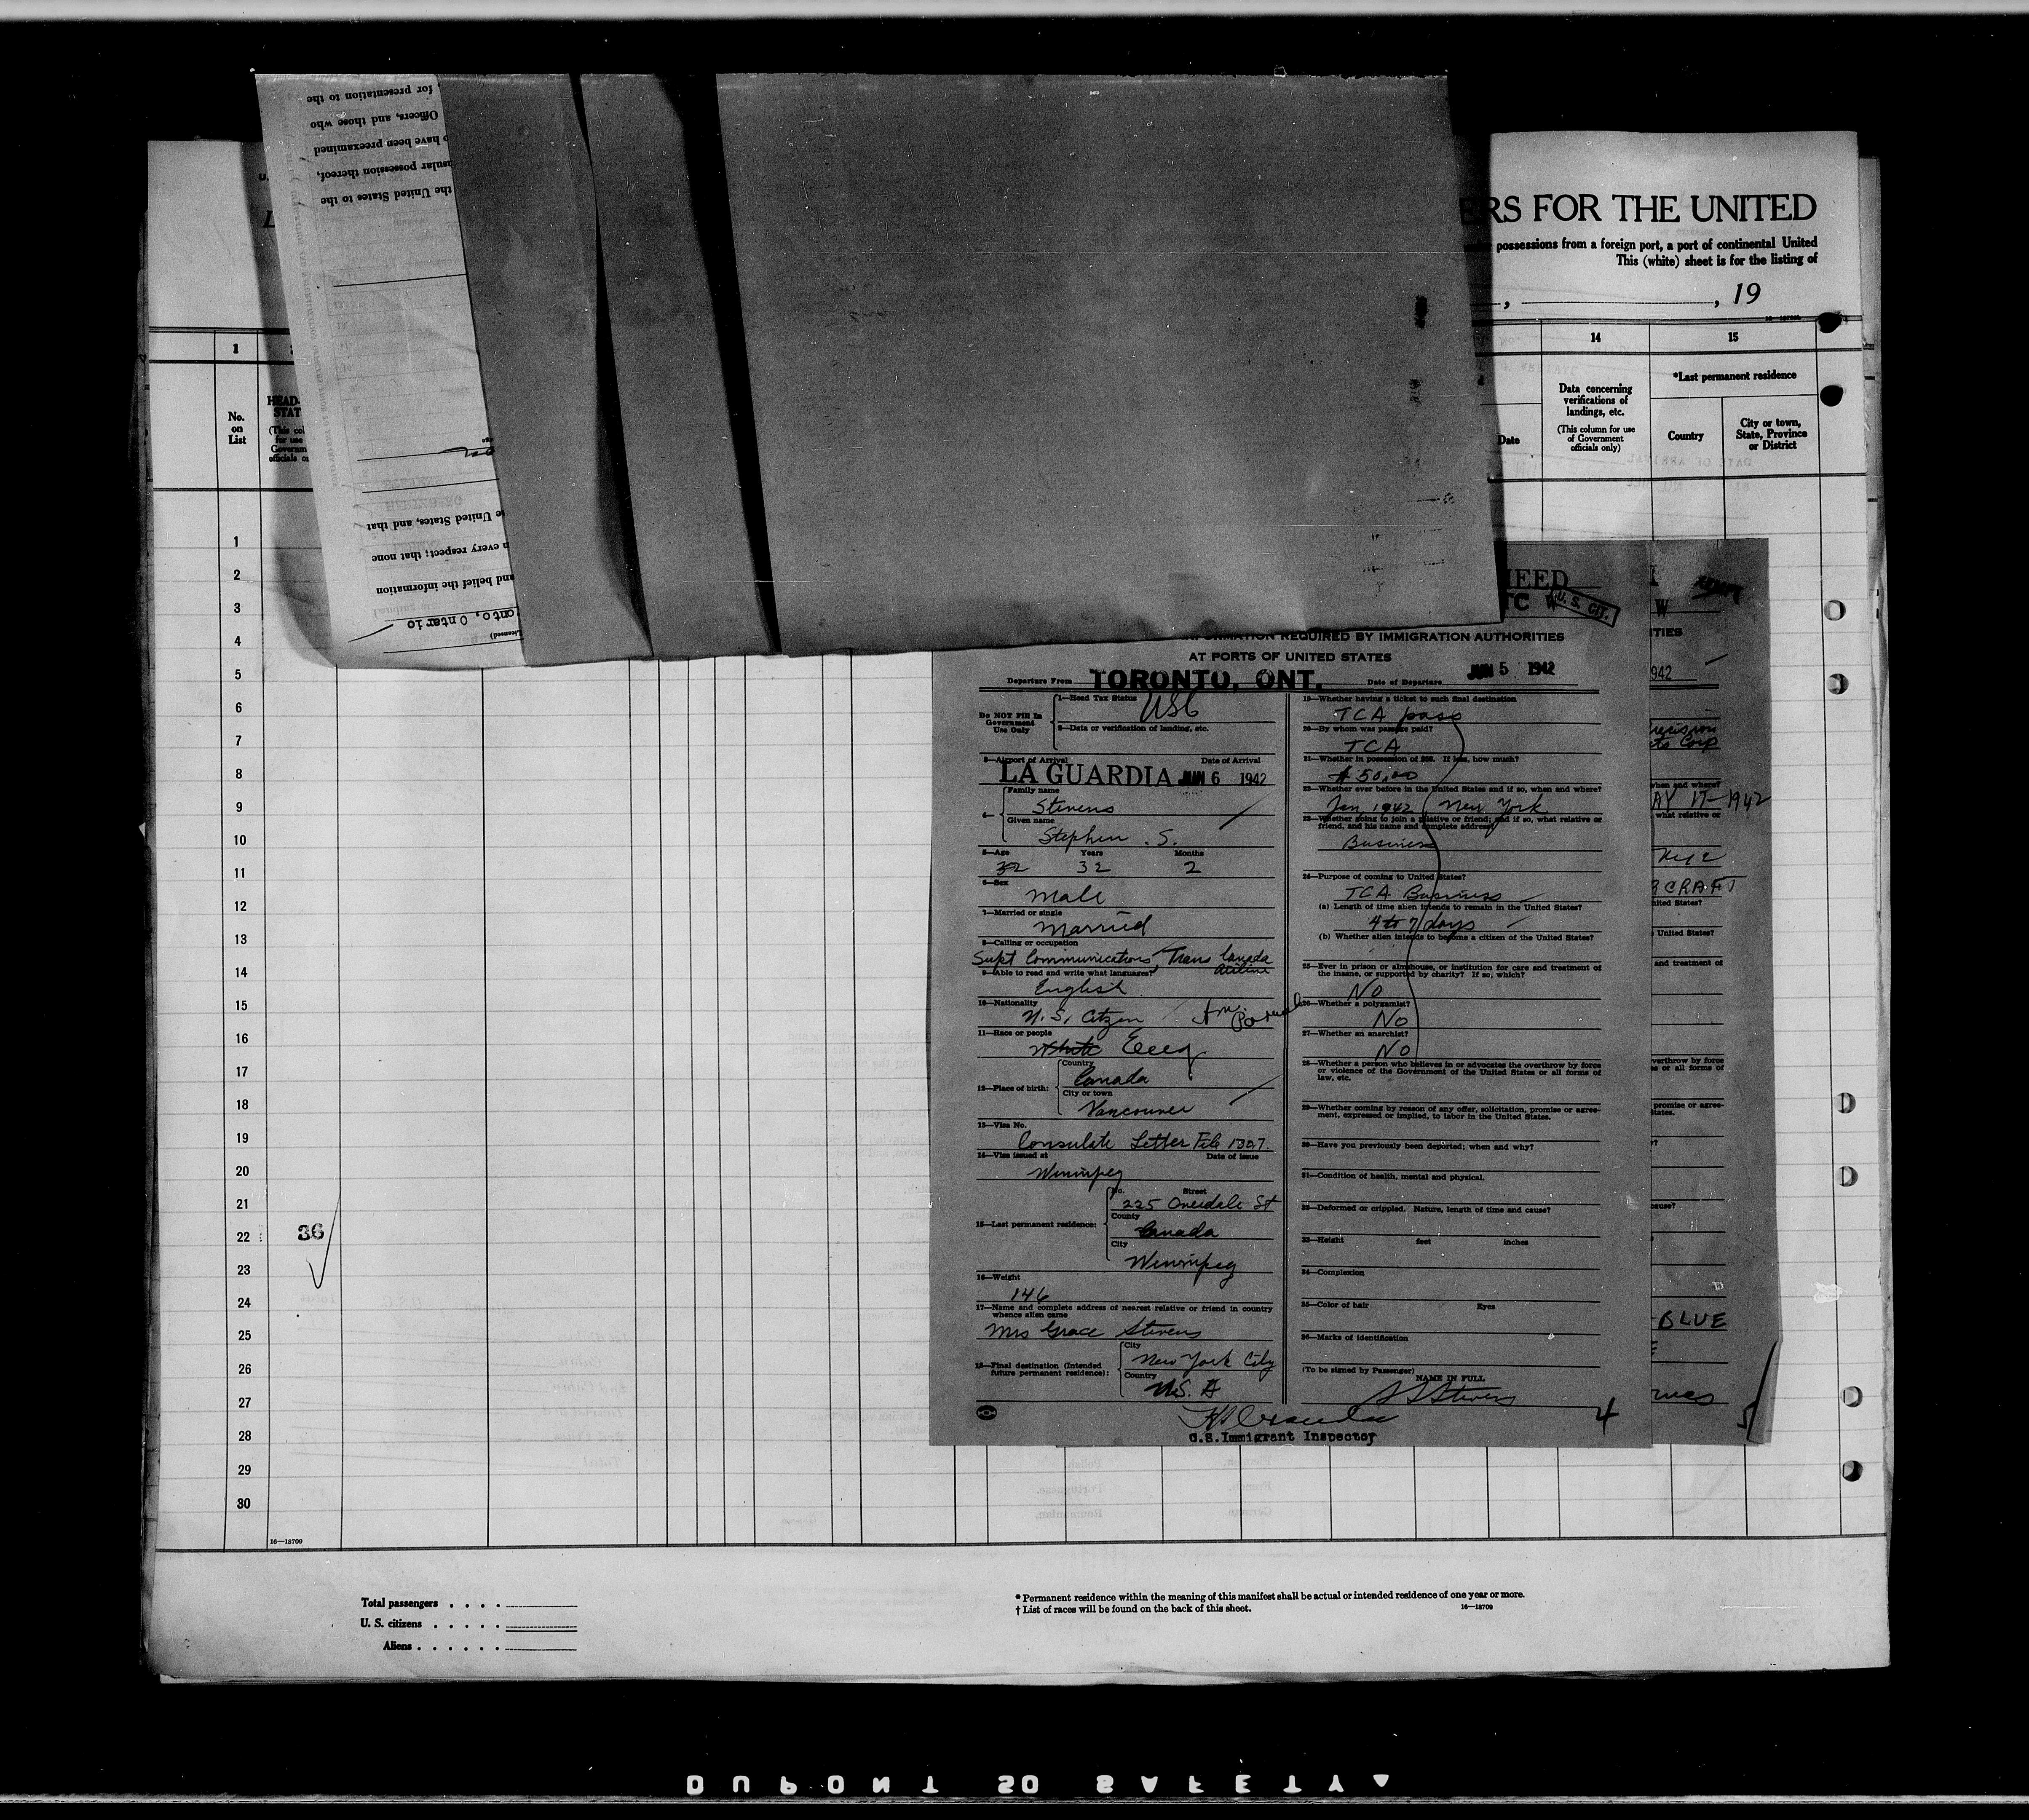 ERS FOR THE UNITED
possessions from a foreign port, a port of continental United
This (white) sheet is for the listing of
, 19
for presentation to the
Officers, and those who
have been preexamined
insular possession thereof,
the United States to the
e United States, and that
n every respect; that none
and belief the information
onto, Ontario
1
14
15
No.
on
List
HEAD-
STAT
(This col
for use
Governm
officials o
Date
Data concerning
verifications of
landings, etc.
(This column for use
of Government
officials only)
*Last permanent residence
Country
City or town,
State, Province
or District
1
2
3
4
5
6
7
8
9
10
11
12
13
14
15
16
17
18
19
20
21
22
23
24
25
26
27
28
29
30
36
16—18709
U. S. CIT.
INFORMATION REQUIRED BY IMMIGRATION AUTHORITIES
AT PORTS OF UNITED STATES
Departure From TORONTO, ONT. Date of Departure JUN 5 1942
Do NOT Fill In
Government
Use Only
1—Head Tax Status
USC
2—Data or verification of landing, etc.
3—Airport of Arrival Date of Arrival
LA GUARDIA JUN 6 1942
4—
Family name
Stevens
Given name
Stephen . S.
5—Age Years Months
32 32 2
6—Sex
Male
7—Married or single
Married
8—Calling or occupation
Supt Communications Trans Canada
Airline
9—Able to read and write what languages?
English
10—Nationality
U. S. Citzen
11—Race or people
White
12—Place of birth:
Country
Canada
City or town
Vancouver
13—Visa No.
Consulate Letter File 1307.
14—Visa issued at Date of issue
Winnipeg
15—Last permanent residence:
No. Street
225 Overdale St
County
Canada
City
Winnipeg
16—Weight
146
17—Name and complete address of nearest relative or friend in country
whence alien came
Mrs Grace Stevens
18—Final destination (Intended
future permanent residence):
City
New York City
Country
U.S. A
19—Whether having a ticket to such final destination
TCA pass
20—By whom was passage paid?
TCA
21—Whether in possession of $50. If less, how much?
$ 50.00
22—Whether ever before in the United States and if so, when and where?
Jan 1942 New York
23—Whether going to join a relative or friend; and if so, what relative or
friend, and his name and complete address?
Business
24—Purpose of coming to United States?
TCA Business
(a) Length of time alien intends to remain in the United States?
4 to 7 days
(b) Whether alien intends to become a citizen of the United States?
25—Ever in prison or almshouse, or institution for care and treatment of
the insane, or supported by charity? If so, which?
No
26—Whether a polygamist?
No
27—Whether an anarchist?
No
28—Whether a person who believes in or advocates the overthrow by force
or violence of the Government of the United States or all forms of
law, etc.
29—Whether coming by reason of any offer, solicitation, promise or agree-
ment, expressed or implied, to labor in the United States.
30—Have you previously been deported; when and why?
31—Condition of health, mental and physical.
32—Deformed or crippled. Nature, length of time and cause?
33—Height feet inches
34—Complexion
35—Color of hair Eyes
36—Marks of identification
(To be signed by Passenger)
NAME IN FULL
S S Stevens
U.S. Immigrant Inspector
4
W
942
Corp
when and where?
AY 17-1942
what relative or
NYC
RCRAFT
nited States?
United States?
and treatment of
verthrow by force
s or all forms of
promise or agree-
States.
cause?
BLUE
5
Total passengers
U. S. citizens
Aliens
* Permanent residence within the meaning of this manifest shall be actual or intended residence of one year or more.
† List of races will be found on the back of this sheet.
16—18709
DUPONT SO SAFETY